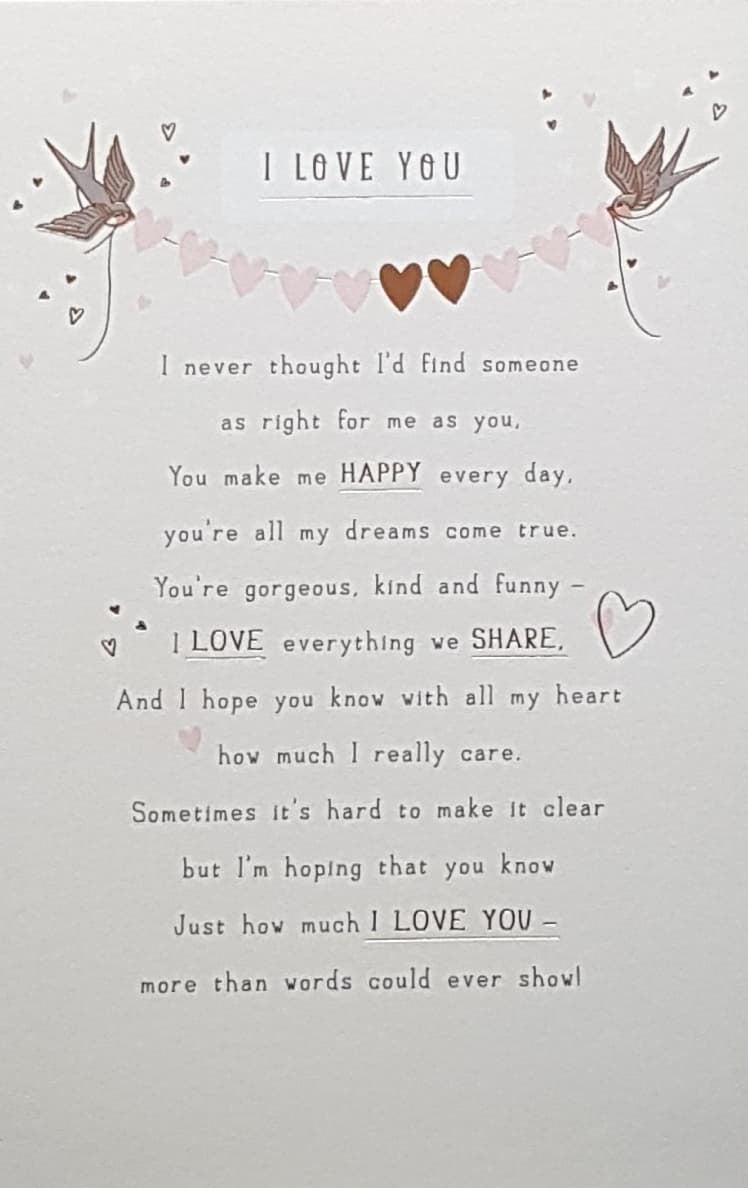 I LOVE YOU
I never thought I'd find someone
as right for me as you,
You make me HAPPY every day,
you're all my dreams come true.
You're gorgeous, kind and funny –
I LOVE everything we SHARE,
And I hope you know with all my heart
how much I really care.
Sometimes it's hard to make it clear
but I'm hoping that you know
Just how much I LOVE YOU –
more than words could ever show!